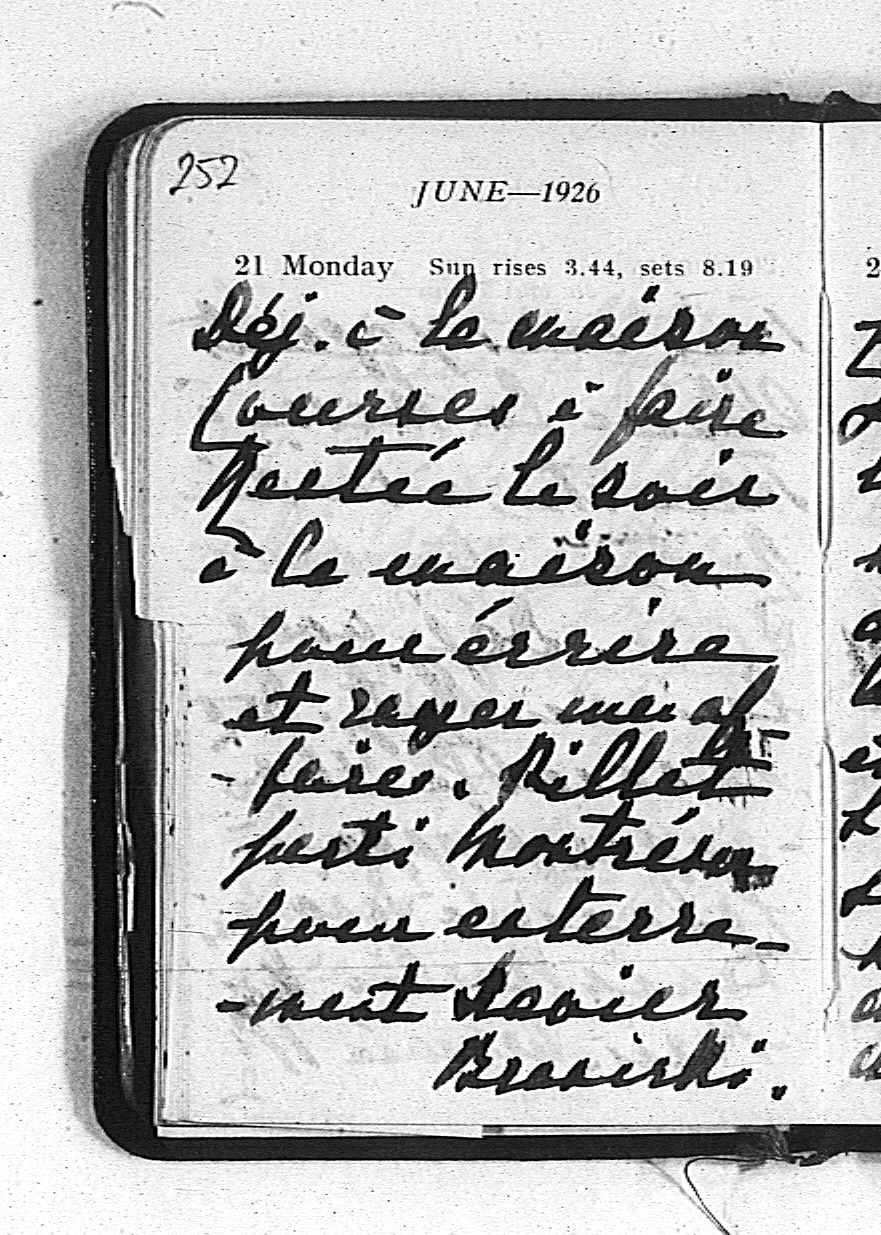 252
JUNE—1926
21 Monday Sun rises 3.44, sets 8.19
Déj. à la maison
Courses à faire
Restée le soir
à la maison
pour écrire
et ranger mes af
- faires. Billet
parti Montrésor
pour enterre-
-ment Xavier
Branicki.